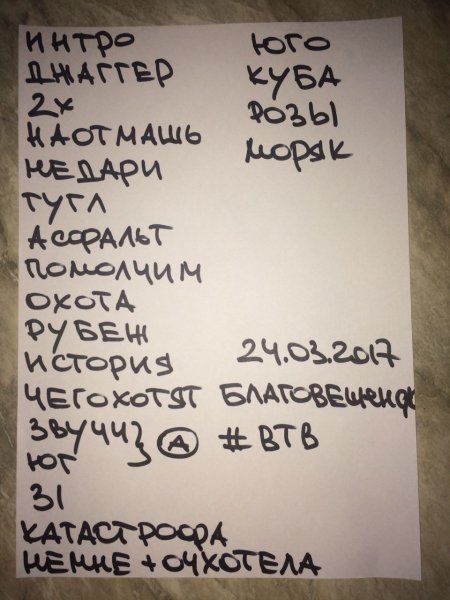 ИНТРО
ДЖАГГЕР
2х
НАОТМАШЬ
НЕДАРИ
ГУГЛ
АСФАЛЬТ
ПОМОЛЧИМ
ОХОТА
РУБЕЖ
ИСТОРИЯ
ЧЕГОХОТЯТ
ЗВУЧИ } А
ЮГ
31
КАТАСТРОФА
НЕМНЕ + ОЧХОТЕЛА
ЮГО
КУБА
РОЗЫ
МОРЯК
24.03.2017
БЛАГОВЕЩЕНСК
#ВТВ